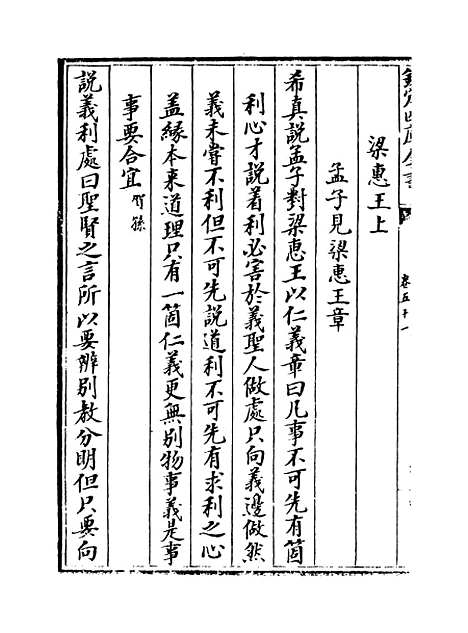 欽定四庫全書
卷五十一
梁惠王上
孟子見梁惠王章
希真說孟子對梁惠王以仁義章曰凡事不可先有箇
利心才說着利必害於義聖人做處只向義邊做然
義未嘗不利但不可先說道利不可先有求利之心
蓋緣本来道理只有一箇仁義更無别物事義是事
事要合宜賀孫
說義利處曰聖賢之言所以要辨别教分明但只要向